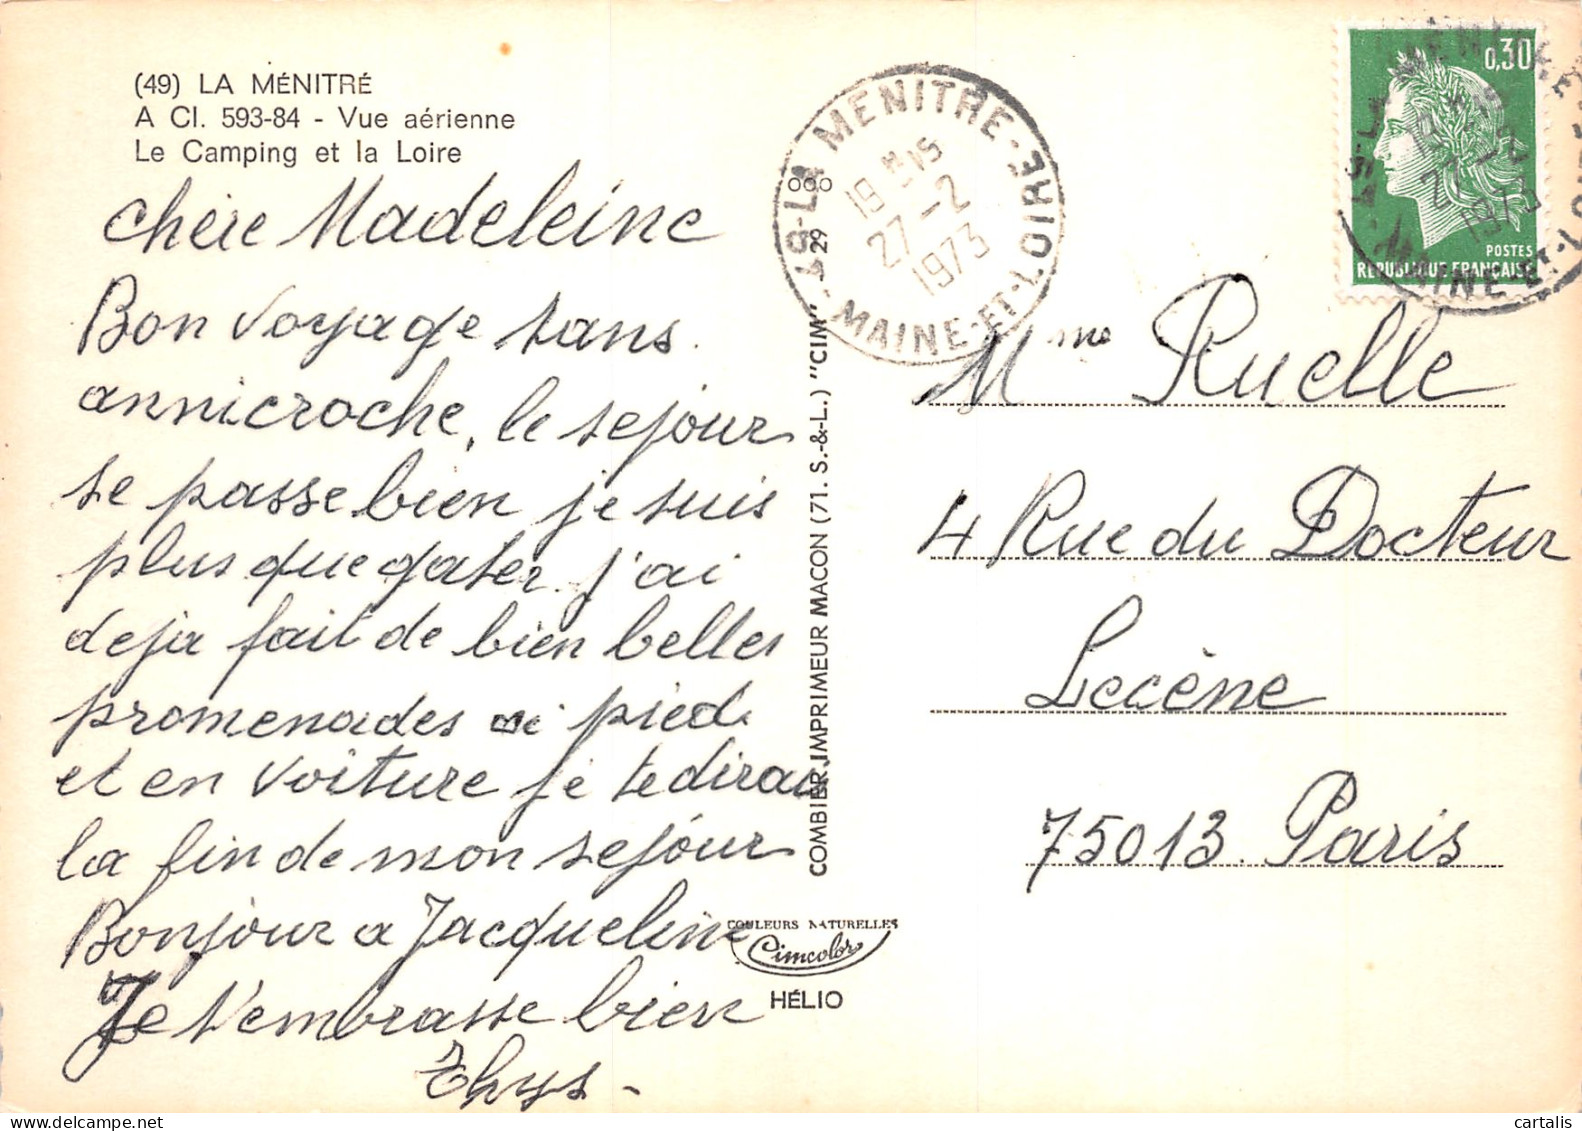 (49) LA MÉNITRÉ
A CI. 593-84 - Vue aérienne
Le Camping et la Loire
chère Madeleine
Bon voyage sans
annicroche, le sejour
se passe bien je suis
plus que gater j'ai
deja fait de bien belles
promenades a pied
et en voiture je te dirai
la fin de mon sejour
Bonjour a Jacqueline
Je t'embrasse bien
Thys -
COMBIER IMPRIMEUR MACON (71. S.-&-L.) "CIM"
COULEURS NATURELLES
Cimcolor
HÉLIO
49-LA MENITRE-LOIRE
19 H 15
27-2
1973
MAINE-ET-LOIRE
0,30
POSTES
REPUBLIQUE FRANÇAISE
27-2
1973
MAINE-ET-LOIRE
Mme Ruelle
4 Rue du Docteur
Lecène
75013. Paris
cartalis